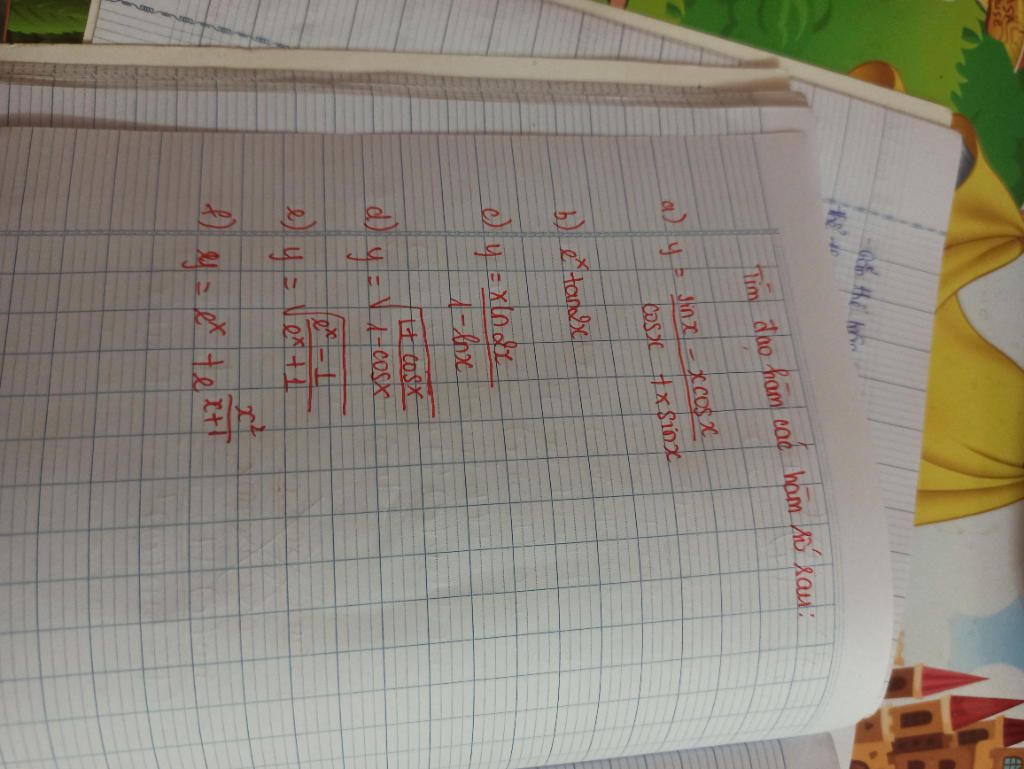 Tìm đạo hàm các hàm số sau:
a) y = \frac{sinx - xcosx}{cosx + xsinx}
b) e^x tan2x
c) y = \frac{x ln2x}{1 - lnx}
d) y = \sqrt{\frac{1 + cosx}{1 - cosx}}
e) y = \sqrt{\frac{e^x - 1}{e^x + 1}}
f) y = e^x + e^{\frac{x^2}{x+1}}